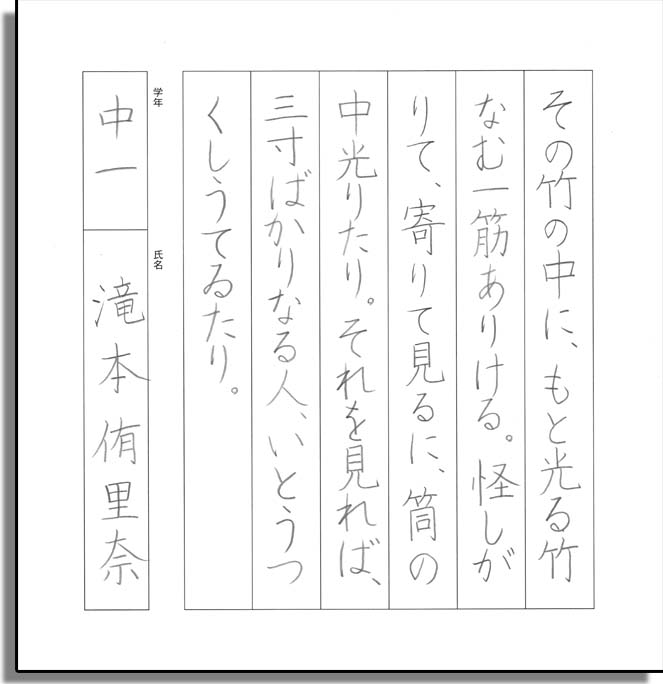 その竹の中に、もと光る竹
なむ一筋ありける。怪しが
りて、寄りて見るに、筒の
中光りたり。それを見れば、
三寸ばかりなる人、いとうつ
くしうてゐたり。
学年
中一
氏名
滝本侑里奈